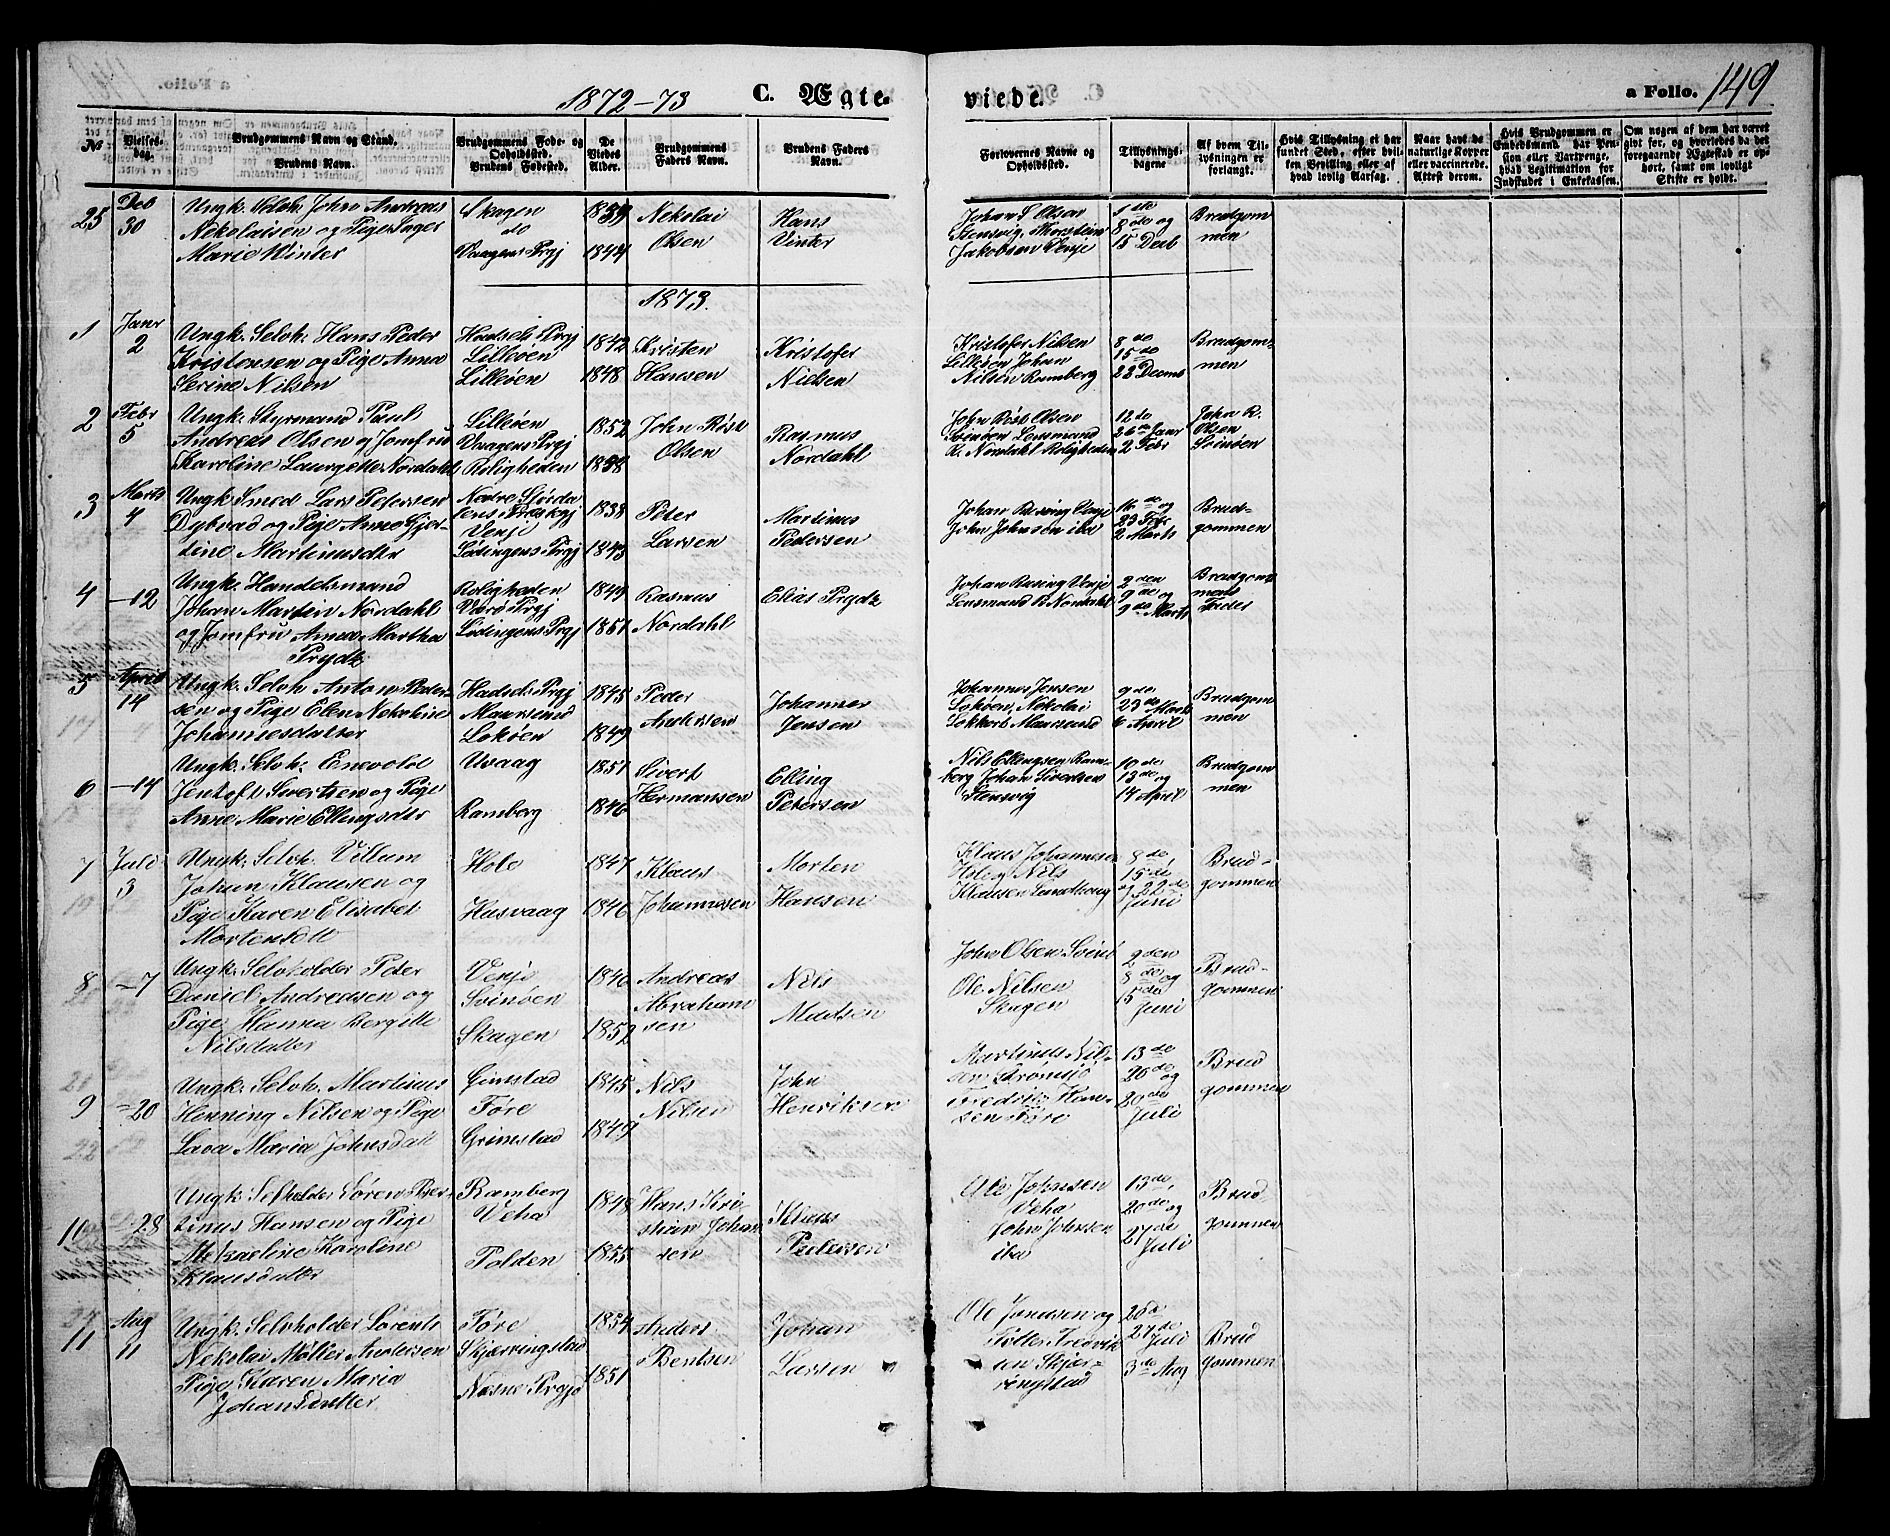 1872-73 C. Ægteviede. a Folio. 149
No
Vielses-
dag.
Brudgommens Navn og Stand.
Brudens Navn.
Brudgommens Føde- og
Opholdssted.
Brudens Fødested.
De
Viedes
Alder.
Brudgommens
Faders Navn.
Brudens Faders
Navn.
Forlovernes Navne og
Opholdssted.
Tillysnings-
dagene
Af hvem Til-
lysningen er
forlangt.
Hvis Tillysning ei har
fundet Sted, efter hvil-
ken Bevilling eller af
hvad lovlig Aarsag.
Naar havt de
naturlige Kopper
eller vaccinerede.
Attest derom.
Hvis Brudgommen er
Embedsmand, har Pen-
sion eller Vartpenge,
hvad Legitimation for
Indskudet i Enkekassen.
Om nogen af dem har været
gift før, og hvorledes da det
foregaaende Ægteskab er op-
hørt, samt om lovligt
Skifte er holdt.
25
Deb
30
Ungk. Selvh. John Andreas
Nekolaisen og Pige Inger
Marie Winter
Skagen
do
Vaagens Prgj
1839
1844
Nekolai
Olsen
Hans
Vinter
Johan S Olsen
Stensvig, Thorstein
Jakobsen Venje
1ste
8de og
15 Decb
Brudgom
men
1873.
1
Janr
2
Ungk. Selvh. Hans Peder
Kristensen og Pige Anna
Serine Nilsen
Hadsels Prgj
Lilleøen
Lilleøen
1842
1848
Kristen
Hansen
Kristofer
Nielsen
Kristofer Nilsen
Lilleøen Johan
Nilsen Ramberg
8de
15de
22 Decmb
Brudgom-
men
2
Febr
5
Ungk. Styrmand Paul
Andreas Olsen og Jomfru
Karoline Laurgette Nordahl
Lilleøen
Vaagens Prgj
Roligheden
1852
1858
John Röst
Olsen
Rasmus
Nordahl
John Röst Olsen
Svinøen Lensmand
R. Nordahl Roligheden
12de
26de Janr
2 Febr
John R.
Olsen
Svinöen
3
Marts
4
Ungk. Smed Lars Petersen
Dybvad og Pige Anne Gjer-
tine Martinusdtr
Nedre Stjørda
lens Præstgj
Venje
Lødingens Prgj
1838
1843
Peter
Larsen
Martinus
Pedersen
Johan Rasing Venje
John Johnsen ibd
16de og
23 Febr
2 Marts
Brud-
gommen
4
-12
Ungk. Handelsmand
Johan Martin Nordahl
og Jomfru Anna Martha
Prydz
Roligheden
Værø Prgj
Lødingens Prgj
1849
1851
Rasmus
Nordahl
Elias Prydz
Johan Rasing Venje
Lensmand R Nordahl
2den
9de og
9de Marts
Brudgom
mens
Fader
5
April
14
Ungk. Selvh Anton Peder-
sen og Pige Elen Nekoline
Johannesdatter
Hadsels Prgj
Maursund
Lokøen
1845
1849
Peder
Andersen
Johannes
Jensen
Johannes Jensen
Lokøen, Nekolai
Lokkert Maursund
9de
23de Marts
6 April
Brudgom
men
6
-14
Ungk. Selvh. Enevold
Jentoft Sivertsen og Pige
Anne Marie Ellingsdtr
Uvaag
Ramberg
1851
1846
Sivert
Hermansen
Elling
Petersen
Nils Ellingsen Ram-
berg Johan Sivertsen
Stensvig
10de
13de og
14 April
Brudgom
men
7
Juli
3
Ungk. Selvh. Villum
Johan Klausen og
Pige Karen Elisabet
Mortensdtt
Hole
Husvaag
1847
1846
Klaus
Johannesen
Morten
Hansen
Klaus Johannesen
Hole og Nils
Klausen Sandhaug
8de,
15de
og 22de
Juni
Brud-
gommen
8
-7
Ungk. Selvholder Peter
Daniel Andreasen og
Pige Hanna Bergitte
Nilsdatter
Venje
Svinøen
Skagen
1840
1852
Andreas
Abraham
sen
Nils
Madsen
John Olsen Svinö
Ole Nilsen
Skagen
2den
8de og
15de
Juni
Brud-
gommen
9
-20
Ungk. Selvh. Martinus
Henning Nilsen og Pige
Lava Maria Johnsdatt
Gimstad
Føre
Grimstad
1845
1849
Nils
Nilsen
John
Henriksen
Martinus Nil-
sen Strømsjö
Fredrik Han-
sen Føre
13de
20de og
20de
Juli
Brud
gommen
10
-28
Ungk. Selvholder Søren Ber-
tinus Hansen og Pige
Metzeline Karoline
Klausdatter
Ramberg
Veha
Polden
1848
1855
Hans Kri-
stian Johan
sen
Klaus
Pedersen
Ole Johnsen
Veha
John Johnsen
iba
13de,
20de og
27de
Juli
Brud-
gommen
11
Aug
11
Ungk. Selvholder Lorents
Nekolai Møller Andersen
Pige Karen Maria
Johansdatter
Føre
Skjærringstad
Næsne Prgj
1854
1851
Anders
Bentsen
Johan
Larsen
Ole Jonassen og
Tolles Fredrik
sen Skjær-
ringstad
20de
27de Juli
3de Aug
Brud
gommen